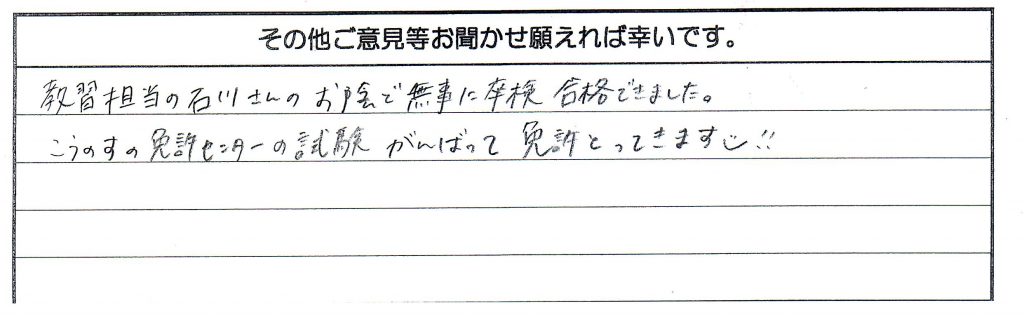 その他ご意見等お聞かせ願えれば幸いです。
教習担当の石川さんのお陰で無事に卒検 合格できました。
こうのすの免許センターの試験 がんばって 免許とってきます!!